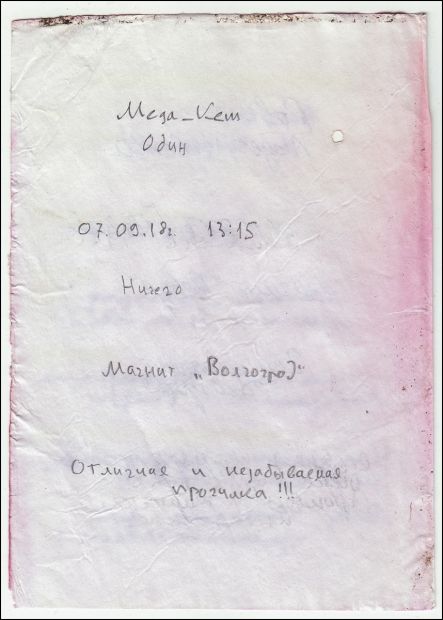 Мега_Кеш
Один
07.09.18г. 13:15
Ничего
Магнит „Волгоград"
Отличная и незабываемая
прогулка !!!